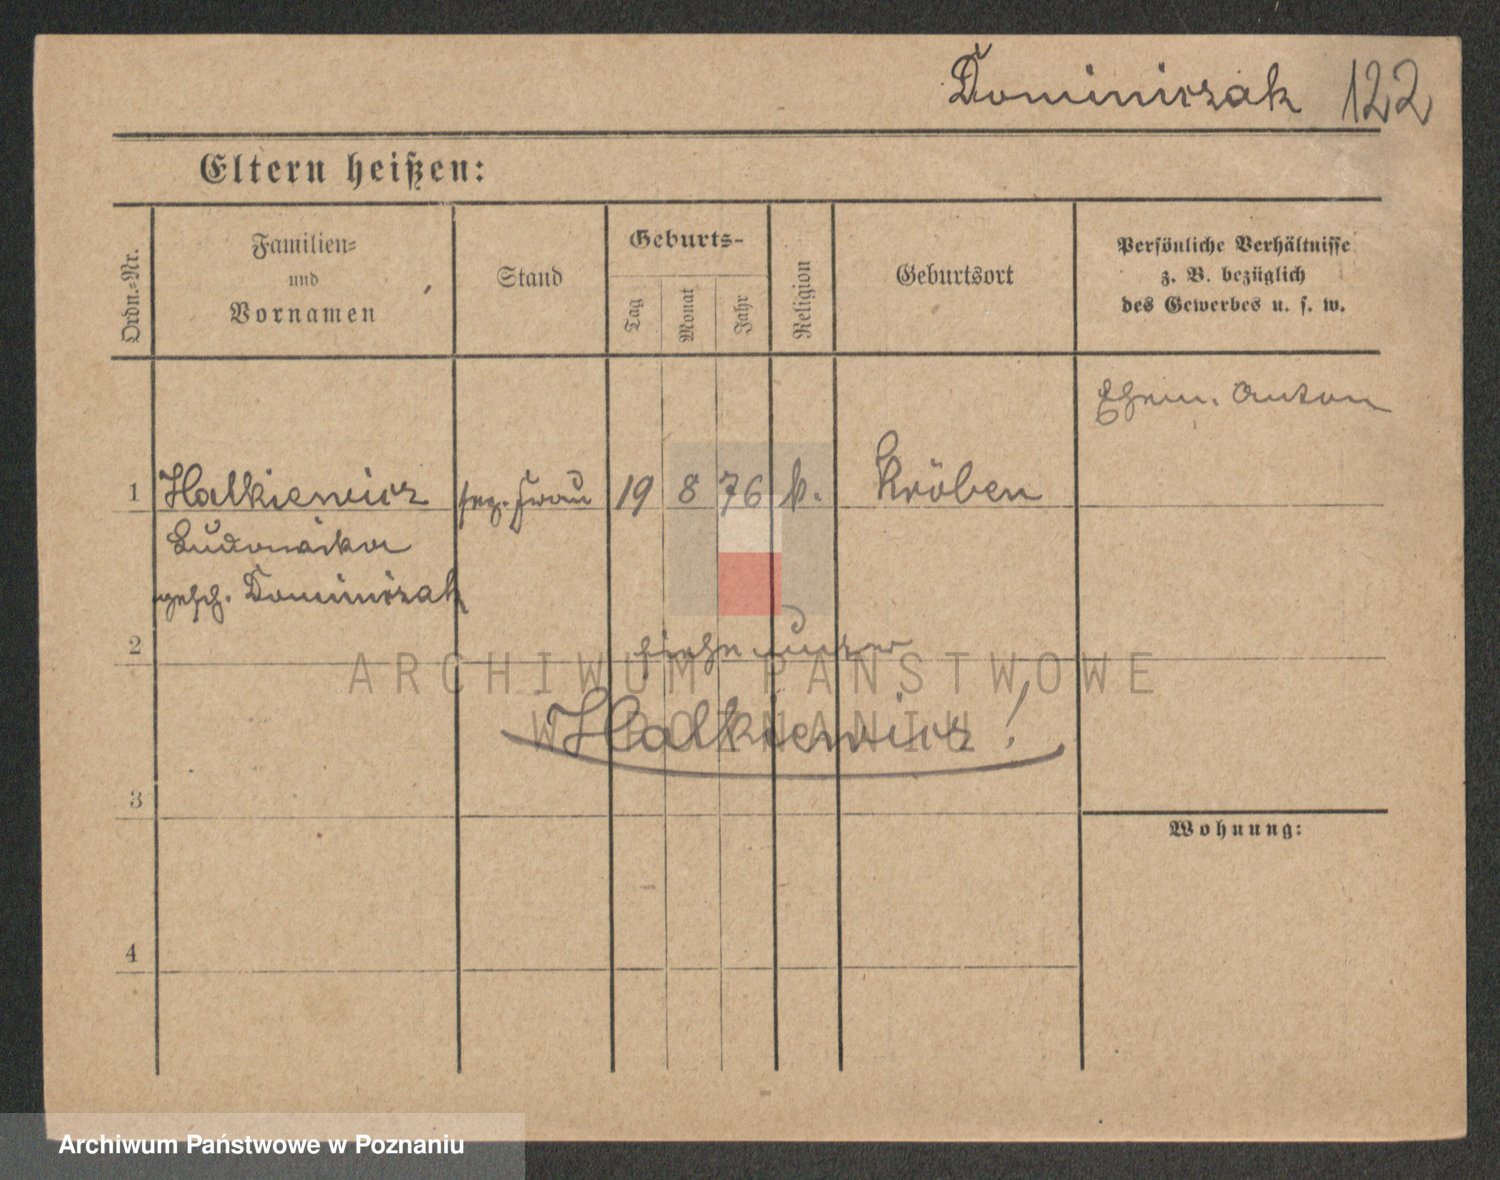 Dominiczak 122
Eltern heißen:
Ordn.-Nr.
Familien-
und
Vornamen
Stand
Geburts-
Tag
Monat
Jahr
Religion
Geburtsort
Persönliche Verhältnisse
z. B. bezüglich
des Gewerbes u. s. w.
Ehem. Anton
1 Halkiewicz Frau 19 8 76 k. Kröben
Ludowika
gesch. Dominiczak
2
siehe unter
Halkiewicz!
ARCHIWUM PAŃSTWOWE
W POZNANIU
3
Wohnung:
4
Archiwum Państwowe w Poznaniu